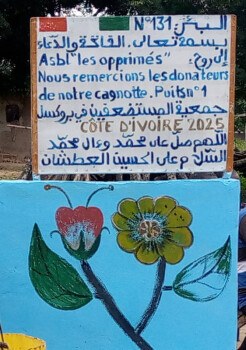 N°131 البئر
بسمه تعالى. الفاتحة والدعاء
Asbl "les opprimés" إلى روح:
Nous remercions les donateurs
de notre cagnotte. Puits n°1
جمعية المستضعفين في بروكسل
CÔTE D'IVOIRE 2025
اللهم صل على محمد وءال محمد
السلام على الحسين العطشان